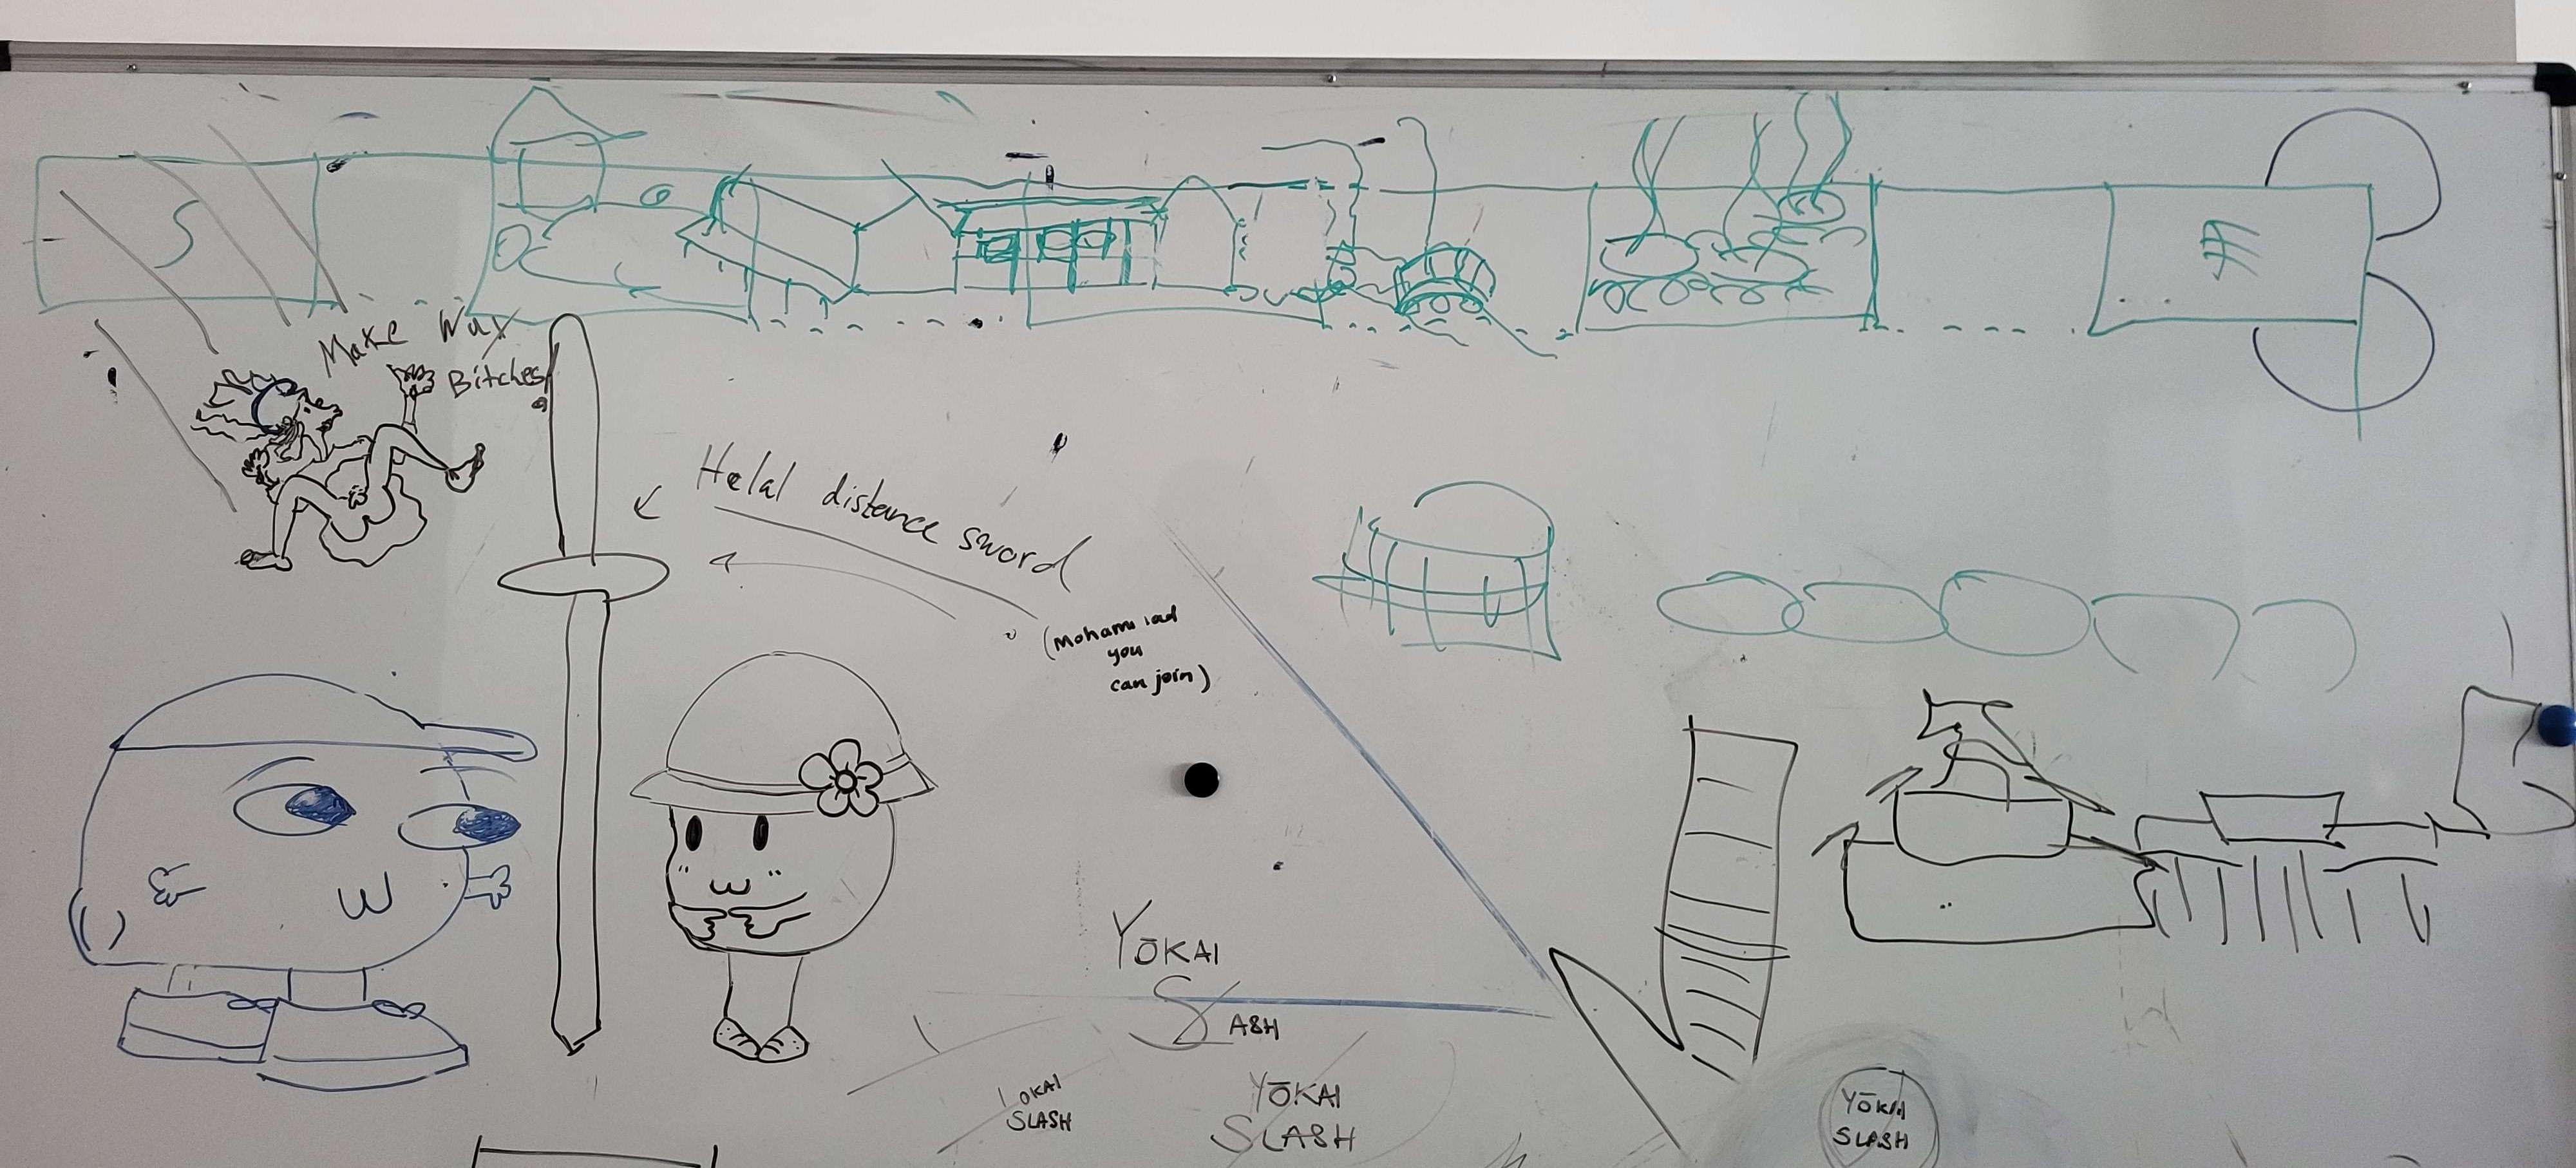 S
E
Make Way
Bitches
Helal distance sword
(Mohammad
you
can join)
YŌKAI
SLASH
YOKAI
SLASH
YŌKAI
SLASH
YŌKAI
SLASH